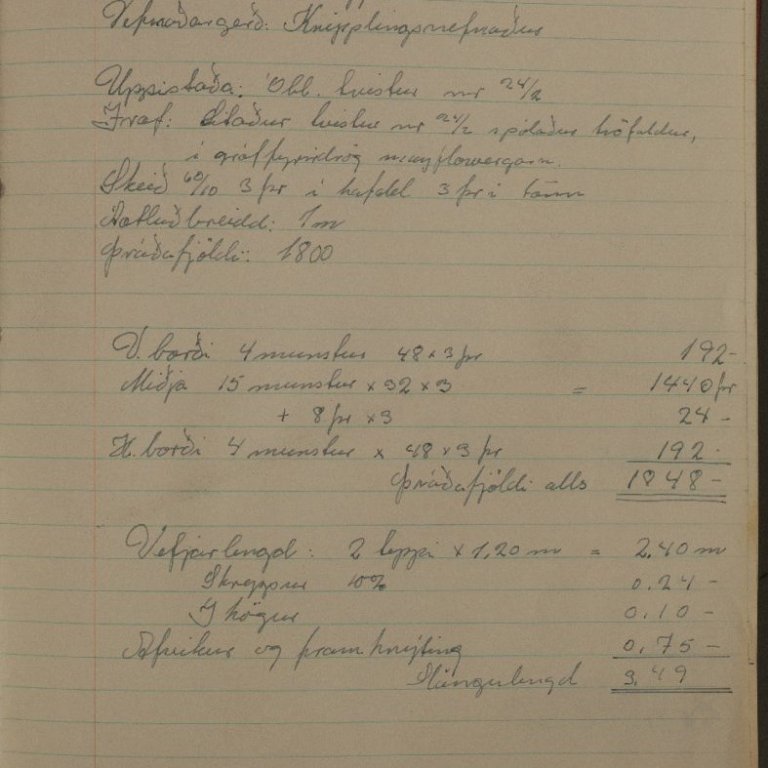 Vefnaðargerð: Knipplingsvefnaður
Uppistaða: Óbl. tvistur nr 24/2
Ívaf: Litaður tvistur nr 24/2 spólaður þrefaldur,
í gróf fyrirdrög mayflowergarn.
Skeið 60/10 3 þr í hafald 3 þr í tönn
Áætluð breidd: 1 m
Þráðafjöldi: 1800
V. borði 4 munstur 48 x 3 þr 192-
Miðja 15 munstur x 32 x 3 = 1440 þr
+ 8 þr x 3 24 -
H. borði 4 munstur x 48 x 3 þr 192-
Þráðafjöldi alls 1848-
Vefjarlengd: 2 leppi x 1,20 m = 2.40 m
10% 0.24 -
Í kögur 0.10 -
Afvikur og framhnýting 0.75 -
Slöngulengd 3.49